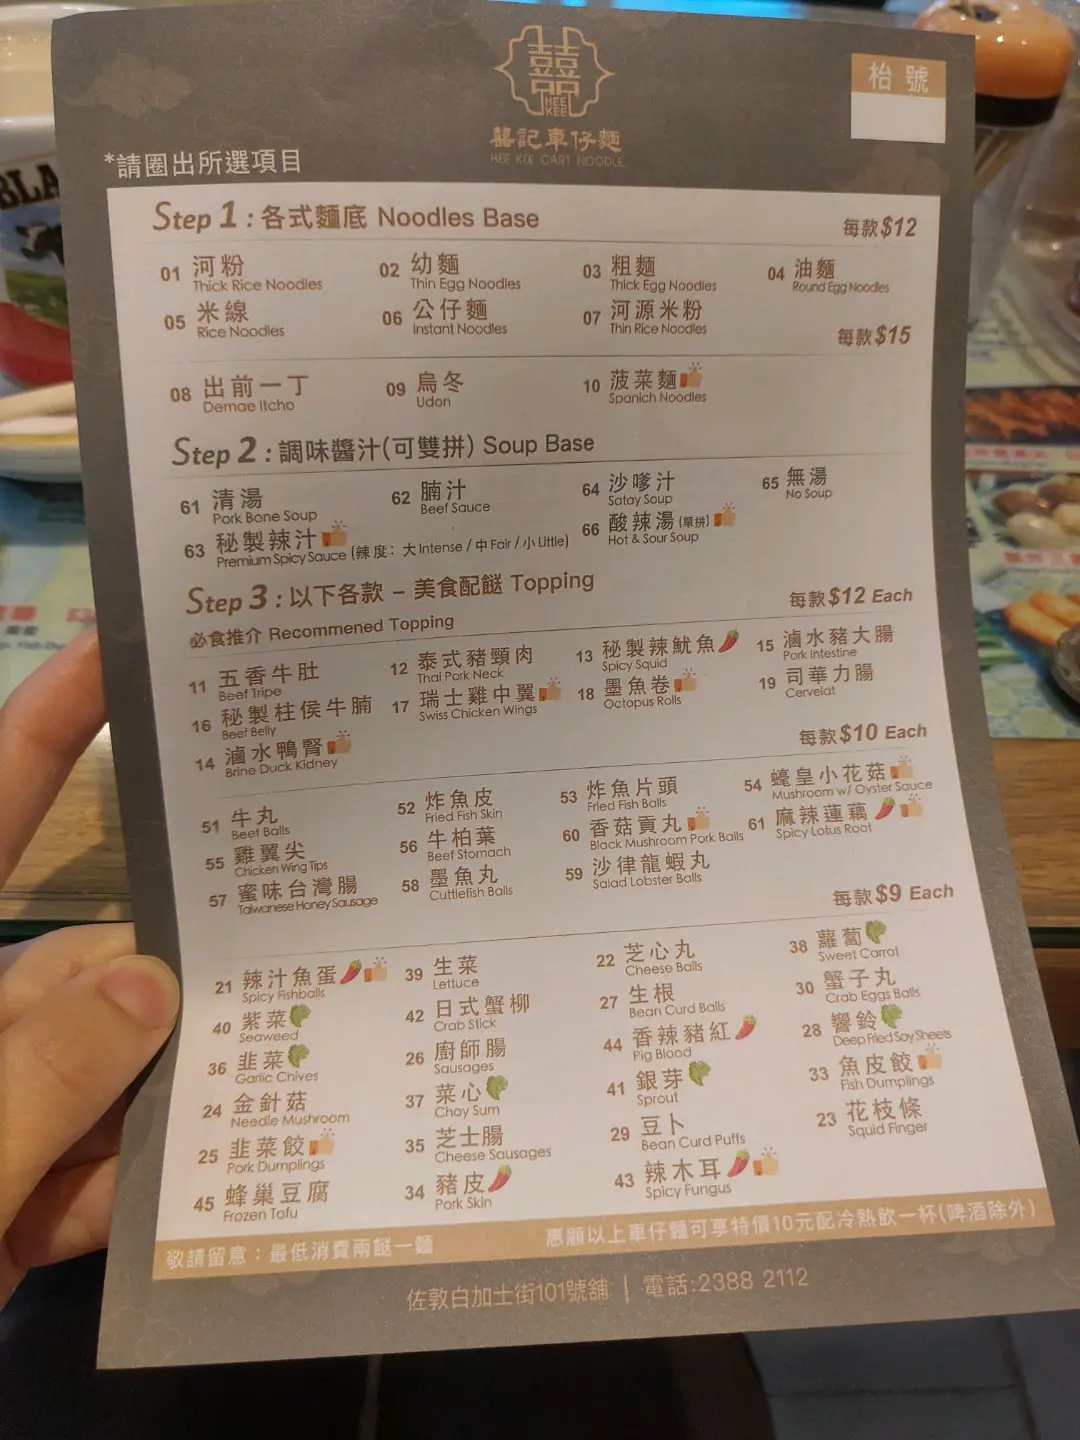 囍
HEE
KEE
囍記車仔麵
HEE KEE CART NOODLE
枱號
*請圈出所選項目
Step 1 : 各式麵底 Noodles Base
每款$12
01 河粉 Thick Rice Noodles
02 幼麵 Thin Egg Noodles
03 粗麵 Thick Egg Noodles
04 油麵 Round Egg Noodles
05 米線 Rice Noodles
06 公仔麵 Instant Noodles
07 河源米粉 Thin Rice Noodles
每款$15
08 出前一丁 Demae Itcho
09 烏冬 Udon
10 菠菜麵 Spanich Noodles
Step 2 : 調味醬汁(可雙拼) Soup Base
61 清湯 Pork Bone Soup
62 腩汁 Beef Sauce
64 沙嗲汁 Satay Soup
65 無湯 No Soup
63 秘製辣汁 Premium Spicy Sauce (辣度: 大 Intense / 中 Fair / 小 Little)
66 酸辣湯 (單拼) Hot & Sour Soup
Step 3 : 以下各款 – 美食配餸 Topping
每款$12 Each
必食推介 Recommened Topping
11 五香牛肚 Beef Tripe
12 泰式豬頸肉 Thai Pork Neck
13 秘製辣魷魚 Spicy Squid
15 滷水豬大腸 Pork Intestine
16 秘製柱侯牛腩 Beef Belly
17 瑞士雞中翼 Swiss Chicken Wings
18 墨魚卷 Octopus Rolls
19 司華力腸 Cervelat
14 滷水鴨腎 Brine Duck Kidney
每款$10 Each
51 牛丸 Beef Balls
52 炸魚皮 Fried Fish Skin
53 炸魚片頭 Fried Fish Balls
54 蠔皇小花菇 Mushroom w/ Oyster Sauce
55 雞翼尖 Chicken Wing Tips
56 牛柏葉 Beef Stomach
60 香菇貢丸 Black Mushroom Pork Balls
61 麻辣蓮藕 Spicy Lotus Root
57 蜜味台灣腸 Taiwanese Honey Sausage
58 墨魚丸 Cuttlefish Balls
59 沙律龍蝦丸 Salad Lobster Balls
每款$9 Each
21 辣汁魚蛋 Spicy Fishballs
39 生菜 Lettuce
22 芝心丸 Cheese Balls
38 蘿蔔 Sweet Carrot
40 紫菜 Seaweed
42 日式蟹柳 Crab Stick
27 生根 Bean Curd Balls
30 蟹子丸 Crab Eggs Balls
36 韭菜 Garlic Chives
26 廚師腸 Sausages
44 香辣豬紅 Pig Blood
28 響鈴 Deep Fried Soy Sheets
24 金針菇 Needle Mushroom
37 菜心 Choy Sum
41 銀芽 Sprout
33 魚皮餃 Fish Dumplings
25 韭菜餃 Pork Dumplings
35 芝士腸 Cheese Sausages
29 豆卜 Bean Curd Puffs
23 花枝條 Squid Finger
45 蜂巢豆腐 Frozen Tofu
34 豬皮 Pork Skin
43 辣木耳 Spicy Fungus
敬請留意：最低消費兩餸一麵
惠顧以上車仔麵可享特價10元配冷熱飲一杯(啤酒除外)
佐敦白加士街101號舖 | 電話:2388 2112
BLA